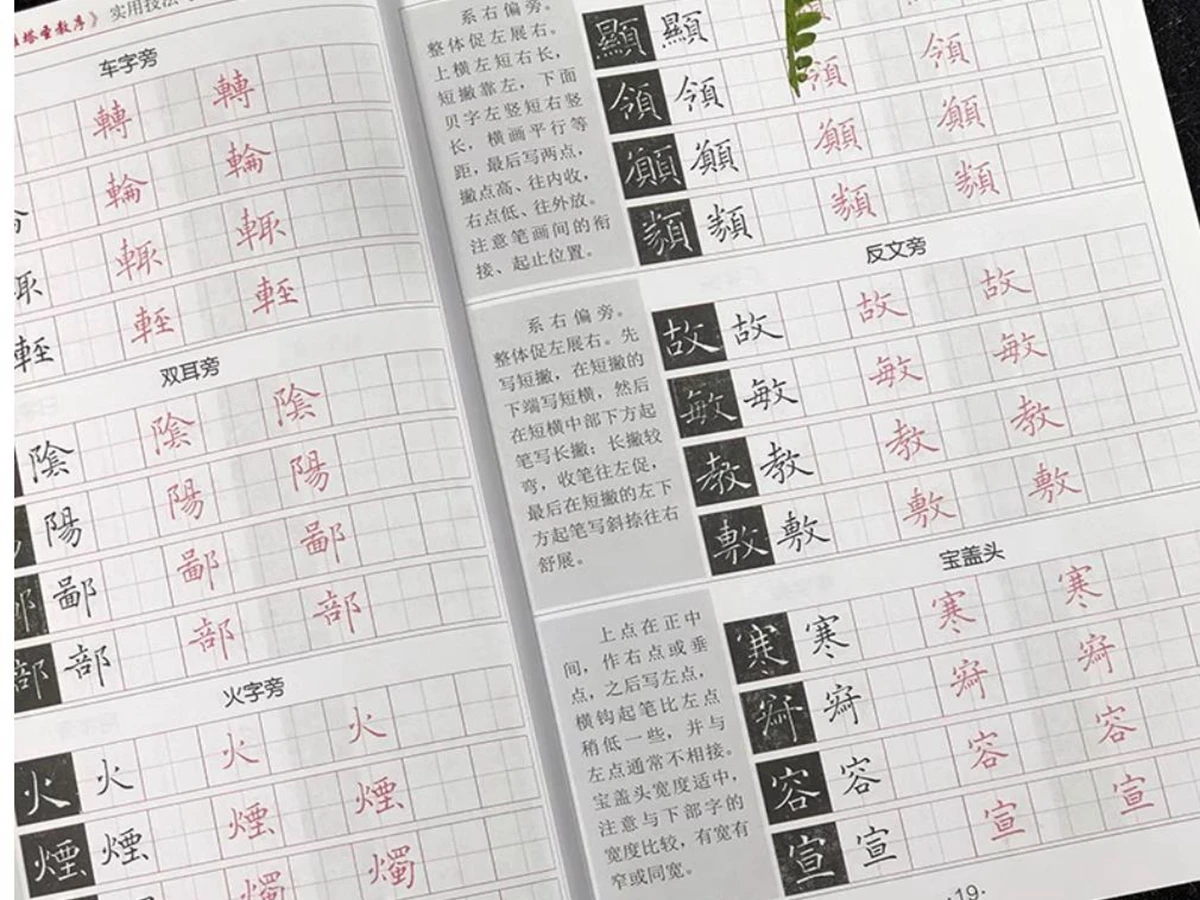 雁塔圣教序》 实用技法
车字旁
轉 轉
輪 輪
輒 輒 輒
輕 輕 輕
双耳旁
陰 陰 陰
陽 陽 陽
鄙 鄙 鄙
部 部 部 部
火字旁
火 火 火 火
煙 煙 煙 煙
燭 燭
系右偏旁。
整体促左展右。
上横左短右长,
短撇靠左,下面
贝字左竖短右竖
长,横画平行等
距,最后写两点,
撇点高、往内收,
右点低、往外放。
注意笔画间的衔
接、起止位置。
顯 顯
領 領 領 領
顏 顏
類 類 類 類
反文旁
系右偏旁。
整体促左展右。先
写短撇,在短撇的
下端写短横,然后
在短横中部下方起
笔写长撇;长撇较
弯,收笔往左促,
最后在短撇的左下
方起笔写斜捺往右
舒展。
故 故 故 故
敏 敏 敏 敏
教 教 教 教
敷 敷 敷 敷
宝盖头
上点在正中
间,作右点或垂
点,之后写左点,
横钩起笔比左点
稍低一些,并与
左点通常不相接。
宝盖头宽度适中,
注意与下部字的
宽度比较,有宽有
窄或同宽。
寒 寒 寒 寒
容 容 容 容
宣 宣 宣 宣
·19·